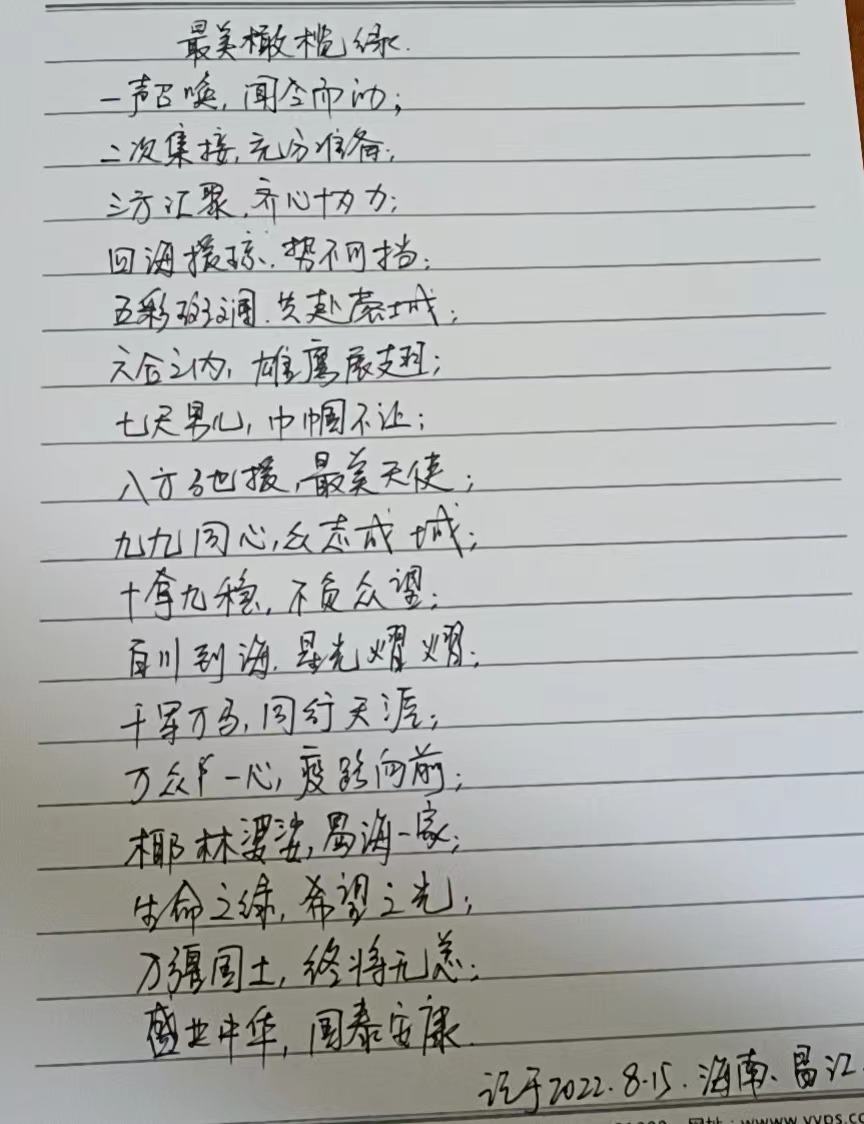 最美橄榄绿.
一声召唤,闻令而动;
二次集接,充分准备;
三方汇聚,齐心协力;
四海援琼,势不可挡;
五彩斑斓,共赴 城;
六合之内,雄鹰展翅;
七尺男儿,巾帼不让;
八方驰援,最美天使;
九九同心,众志成城;
十拿九稳,不负众望;
百川到海,星光熠熠;
千军万马,同行天涯;
万众一心,疫路向前;
椰林婆娑,昌海一家;
生命之绿,希望之光;
万疆国土,终将无恙;
盛世中华,国泰安康.
记于2022.8.15.海南、昌江.
网址:www.yyps.co